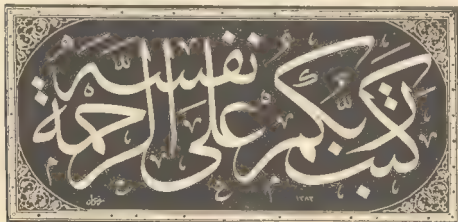 كتب ربكم على نفسه الرحمة
١٢٨٣